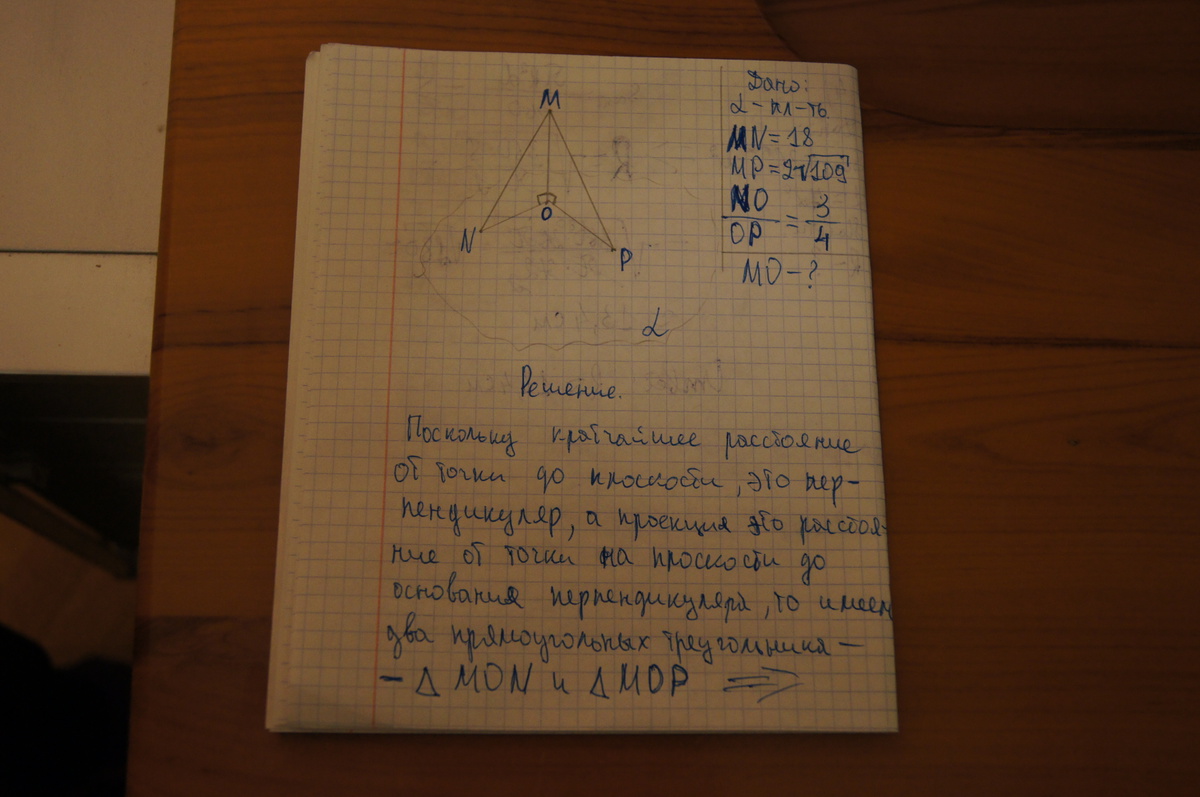 M
N
O
P
α
Дано:
α - пл-ть.
MN = 18
MP = 2√109
NO/OP = 3/4
MO - ?
Решение.
Поскольку кратчайшее расстояние
от точки до плоскости, это пер-
пендикуляр, а проекция это расстоя-
ние от точки на плоскости до
основания перпендикуляра, то имеем
два прямоугольных треугольника —
- Δ MON и Δ MOP ⇒